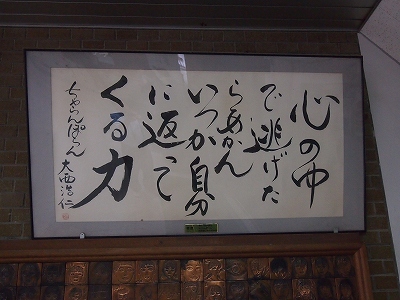 心の中
で逃げた
らあかん
いつか自分
に返って
くる力
ちゃらんぽらん
大西浩仁